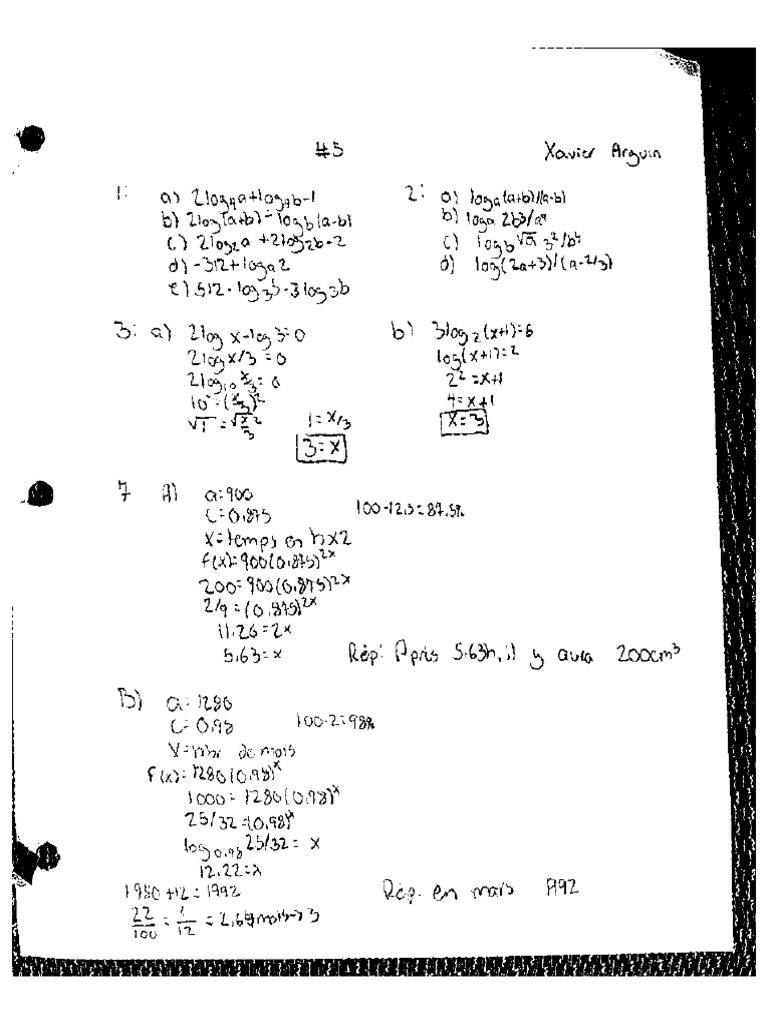 #5 Xavier Arguin
1: a) 2log₄a+log₄b-1
b) 2log(a+b)-logb(a-b)
c) 2log₂a+2log₂b-2
d) -312+loga2
e) .512-log₃b-3log₃b
2: a) loga(a+b)/(a-b)
b) loga 2b³/a⁹
c) logb √a 3²/b⁴
d) log(2a+3)/(a-2/3)
3: a) 2log x-log3=0
2logx/3=0
2log₁₀ x/3=0
10⁰=(x/3)²
√1=√x/3²
1=x/3
3=x
b) 3log₂(x+1)=6
log(x+1)=2
2²=x+1
4=x+1
x=3
7 A) a=900
C=0,875 100-12,5=87,5%
x=temps en h x2
f(x)=900(0,875)²ˣ
200=900(0,875)²ˣ
2/9=(0,875)²ˣ
11,26=2x
5,63=x Rép: Après 5,63h, il y aura 200cm³
B) a=1280
C=0,98 100-2=98%
X=nbr de mois
f(x)=1280(0,98)ˣ
1000=1280(0,98)ˣ
25/32=(0,98)ˣ
log₀,₉₈ 25/32= x
12,22=x
1980+12=1992 Rép. en mars 1992
22/100=1/12=2,64mois→3